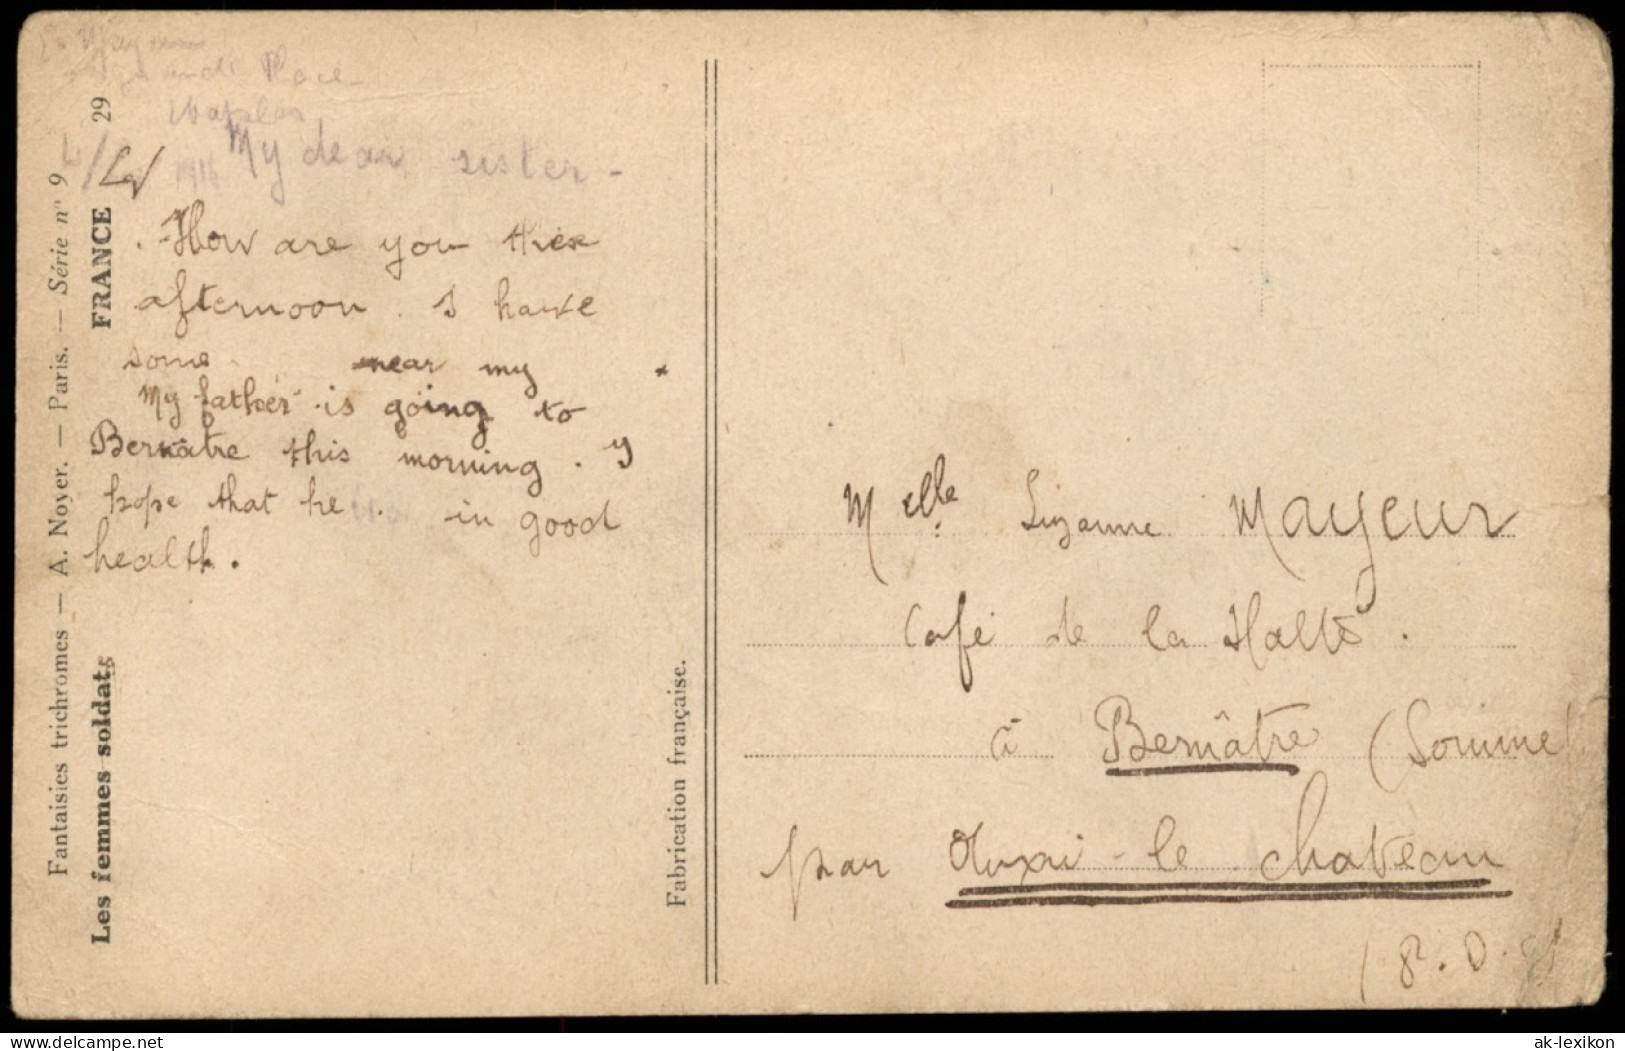 Place
1916
My dear sister -
. How are you thise
afternoon . I have
some near my
My father is going to
Bernâtre this morning . Y
hope that he in good
health .
Fantaisies trichromes — A. Noyer. — Paris. — Série nº 9
Les femmes soldats
FRANCE 29
Fabrication française.
Melle Suzanne Mayeur
Café de la Halte .
à Bernâtre (Somme)
par Auxi-le chateau
www.delcampe.net
ak-lexikon.com